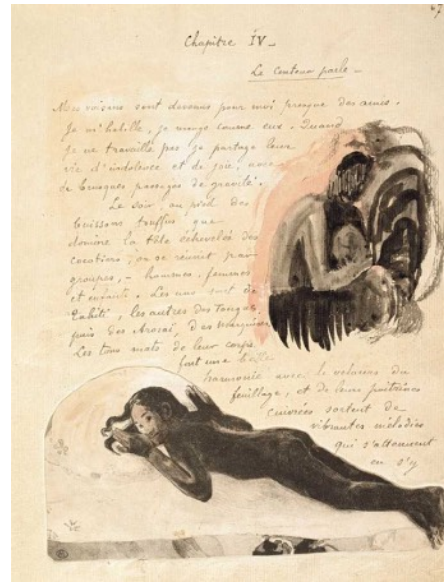 67
Chapitre IV_
Le conteur parle_
Mes voisins sont devenus pour moi presque des amis.
Je m'habille, je mange comme eux. Quand
je ne travaille pas je partage leur
vie d'indolence et de joie, avec
de brusques passages de gravité.
Le soir, au pied des
buissons touffus que
domine la tête échevelée des
cocotiers, on se réunit par
groupes, - hommes, femmes
et enfants. Les uns sont de
Tahiti, les autres des Tongas,
puis des Arosaï, des Marquises.
Les tons mats de leur corps
font une belle
harmonie avec le velours du
feuillage, et de leurs poitrines
cuivrées sortent de
vibrantes mélodies
qui s'atténuent
en s'y